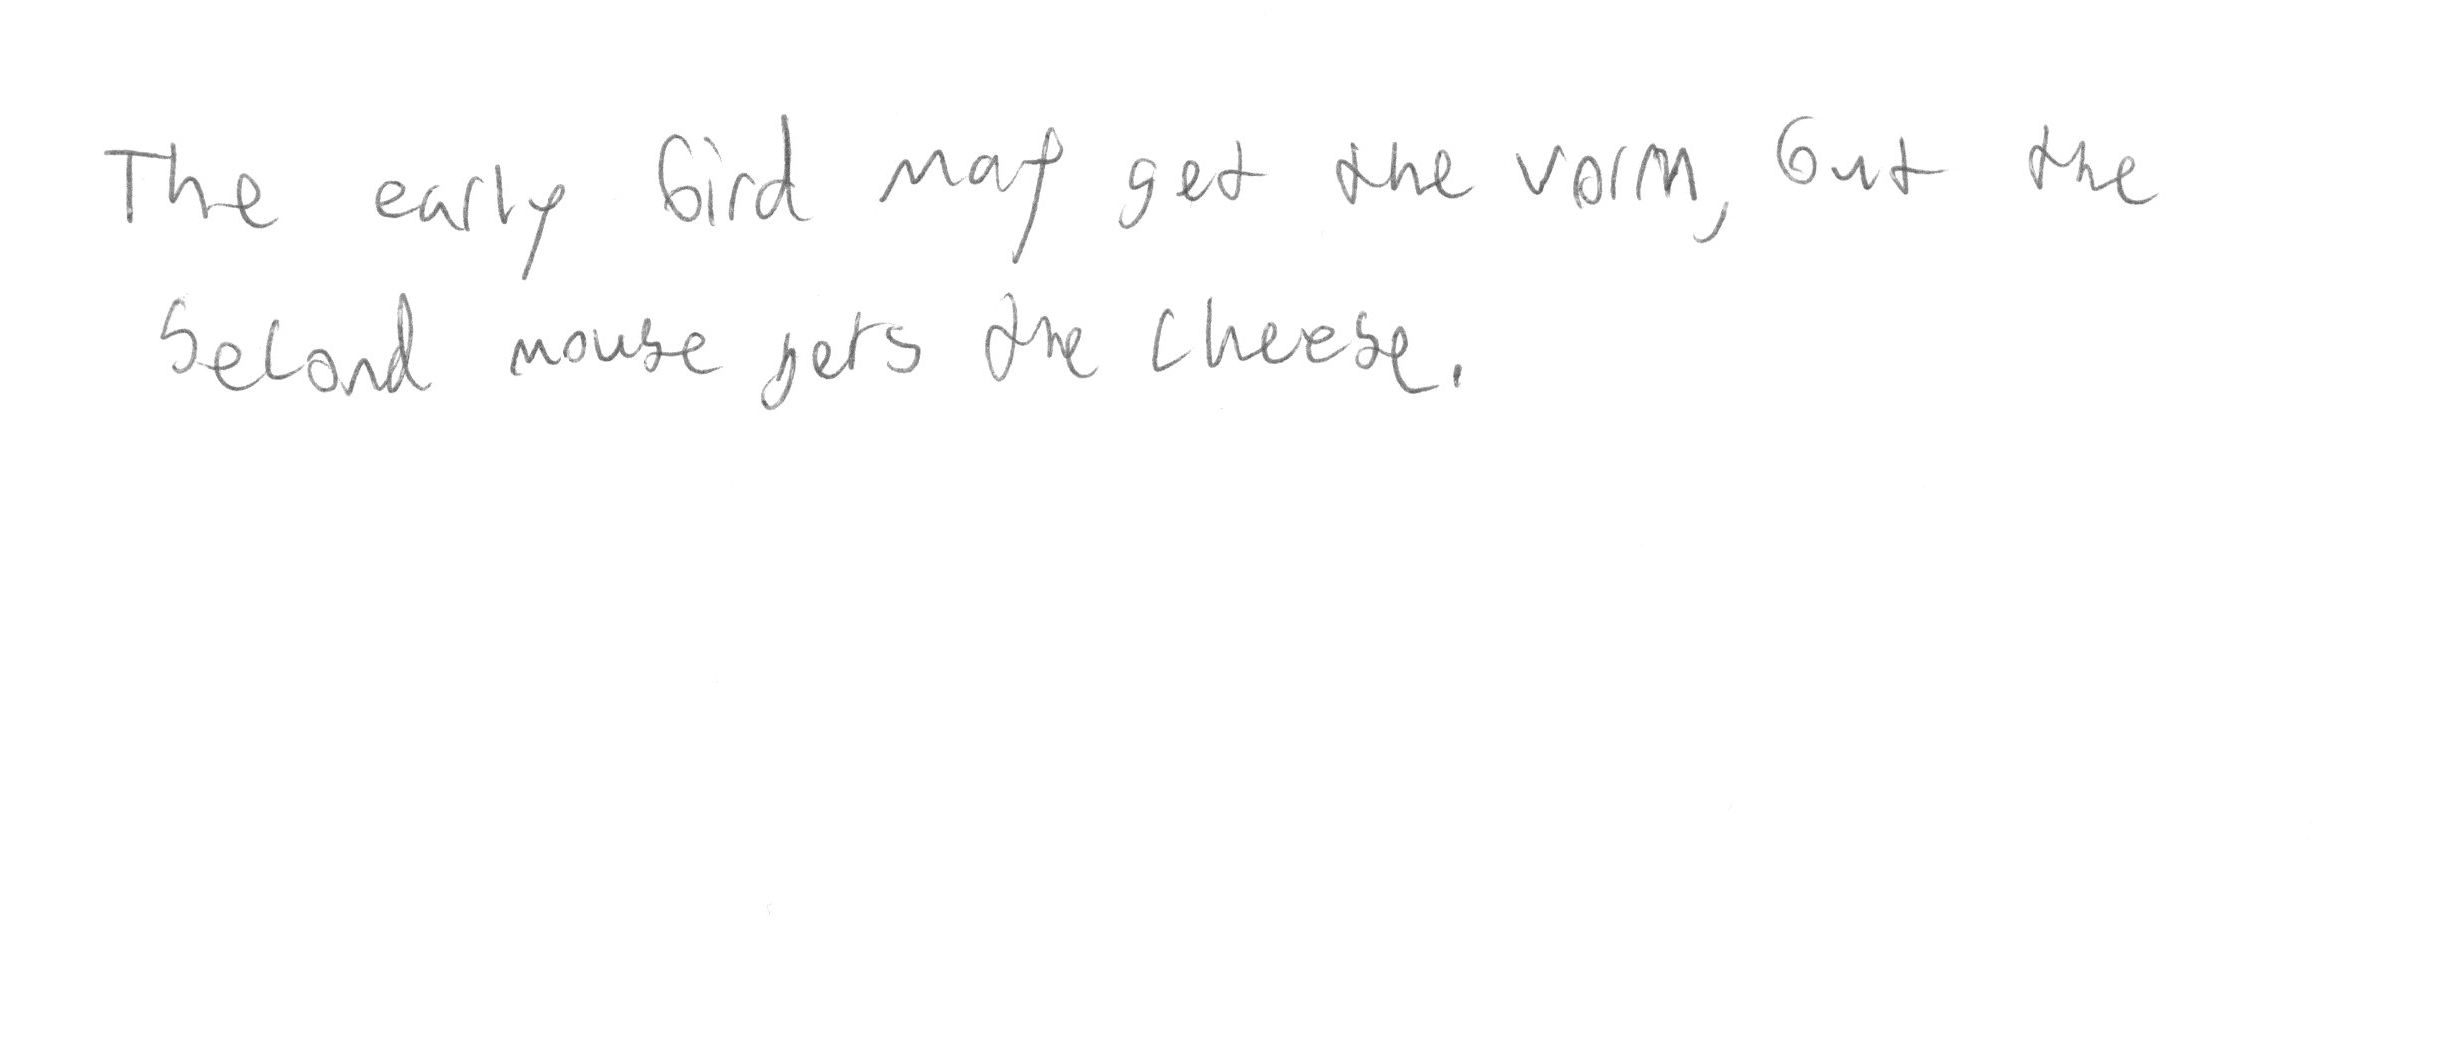 The early bird may get the vorm, but the
second mouse gets the cheese.